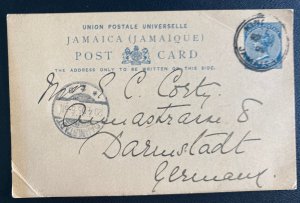 UNION POSTALE UNIVERSELLE
JAMAICA (JAMAÏQUE)
POST CARD
THE ADDRESS ONLY TO BE WRITTEN ON THIS SIDE.
E. C. Corty.
Annastrasse 8
Darmstadt
Germany